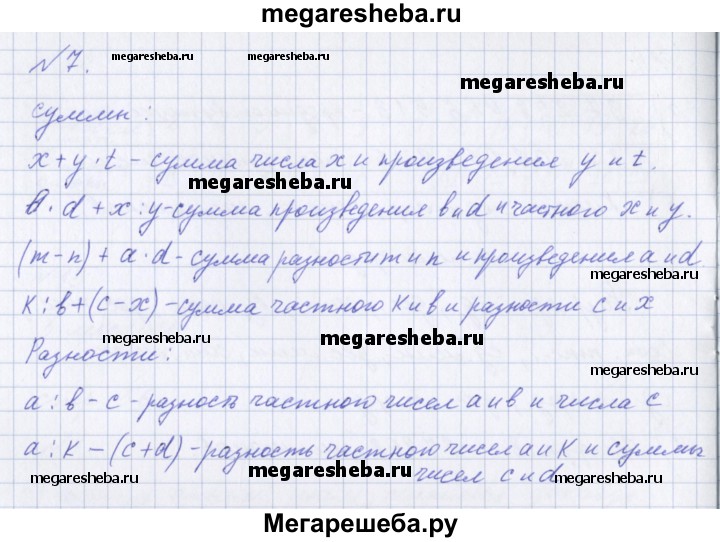 megaresheba.ru
№7. megaresheba.ru megaresheba.ru
megaresheba.ru
суммы :
x + y · t – сумма числа x и произведения y и t.
megaresheba.ru
в · d + x : y – сумма произведения в и d и частного x и y.
(m – n) + a · d – сумма разности m и n и произведения a и d.
megaresheba.ru
к : в + (c – x) – сумма частного к и в и разности c и x
megaresheba.ru megaresheba.ru
Разности :
megaresheba.ru
a : в – c – разность частного чисел a и в и числа c
a : к – (c + d) – разность частного чисел a и к и суммы
megaresheba.ru megaresheba.ru чисел c и d megaresheba.ru
Мегарешеба.ру